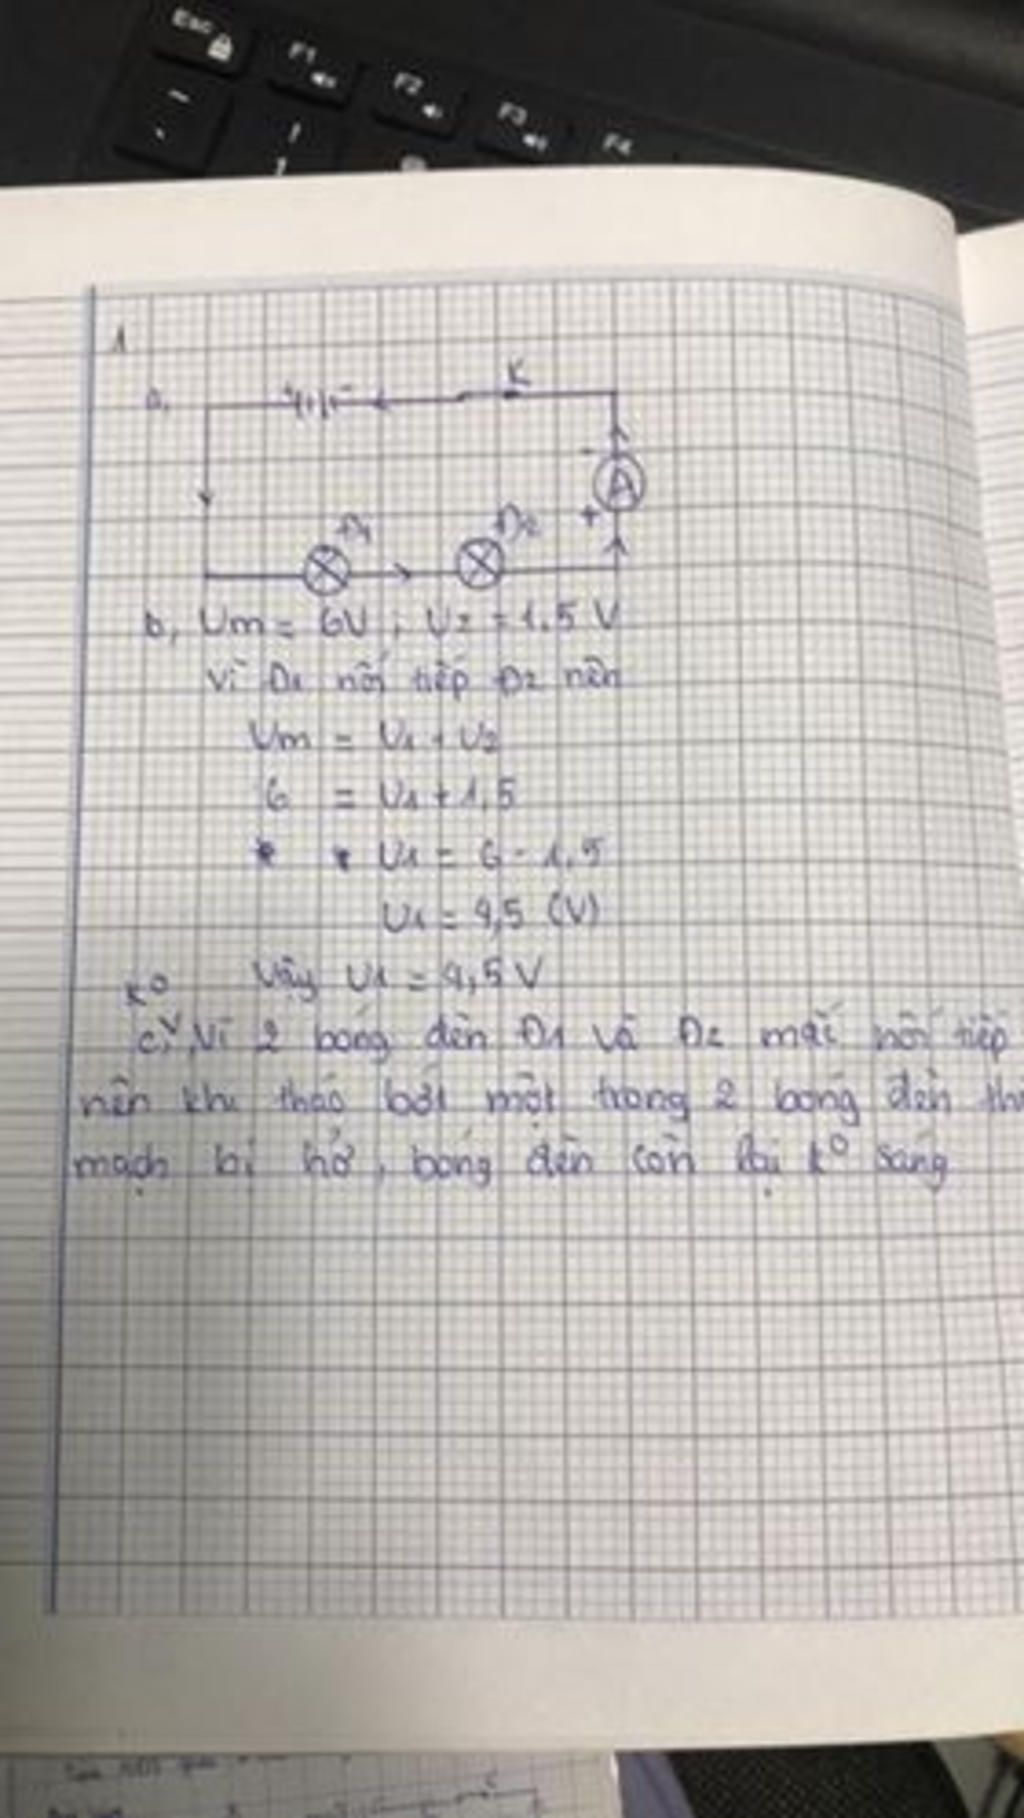 ESC
F1
F2
F3
F4
1
a,
K
+
-
-
A
+
Đ1
Đ2
b, Um = 6V ; U2 = 1.5 V
Vì Đ1 nối tiếp Đ2 nên
Um = U1 + U2
6 = U1 + 1,5
U1 = 6 - 1.5
U1 = 4,5 (V)
Vậy U1 = 4,5 V
K⁰
c, Vì 2 bóng đèn Đ1 và Đ2 mắc nối tiếp
nên khi tháo bớt một trong 2 bóng đèn thì
mạch bị hở, bóng đèn còn lại k⁰ sáng